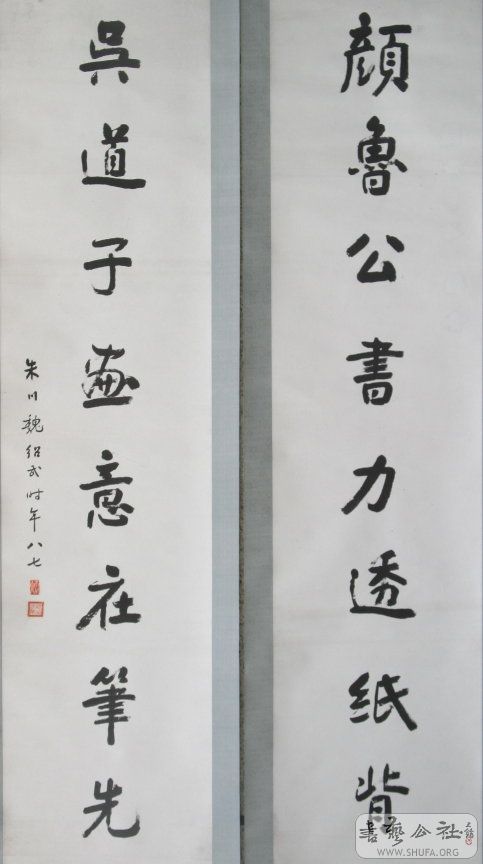 顔魯公書力透紙背
吳道子畫意在筆先
朱川魏紹武時年八七
書藝公社
WWW.SHUFA.ORG